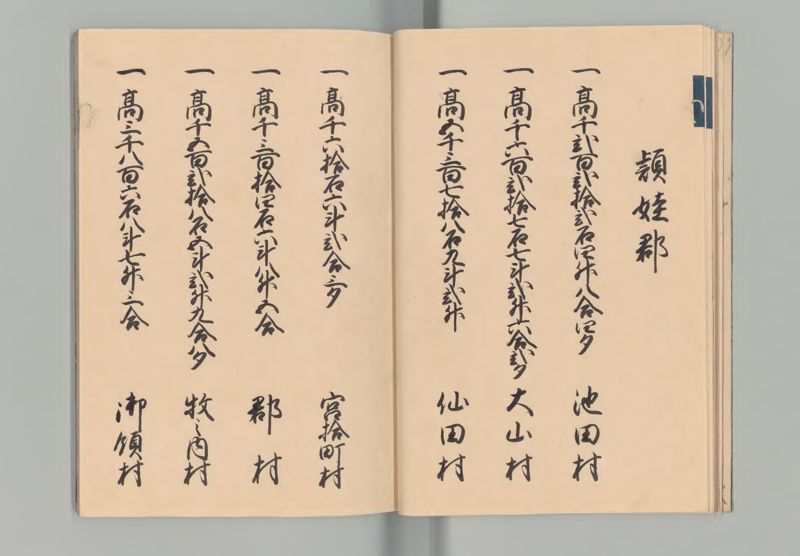 頴娃郡
一高千弐百弐拾弐石四升八合四夕 池田村
一高千六百弐拾七石七斗弐升六合弐夕 大山村
一高五千三百七拾八石九斗弐升 仙田村
一高千六拾石六斗弐合三夕 宮拾町村
一高千三百拾四石六斗八升五合 郡村
一高千五百弐拾八石五斗弐升九合八夕 牧之内村
一高三千八百六石八斗七升三合 御領村